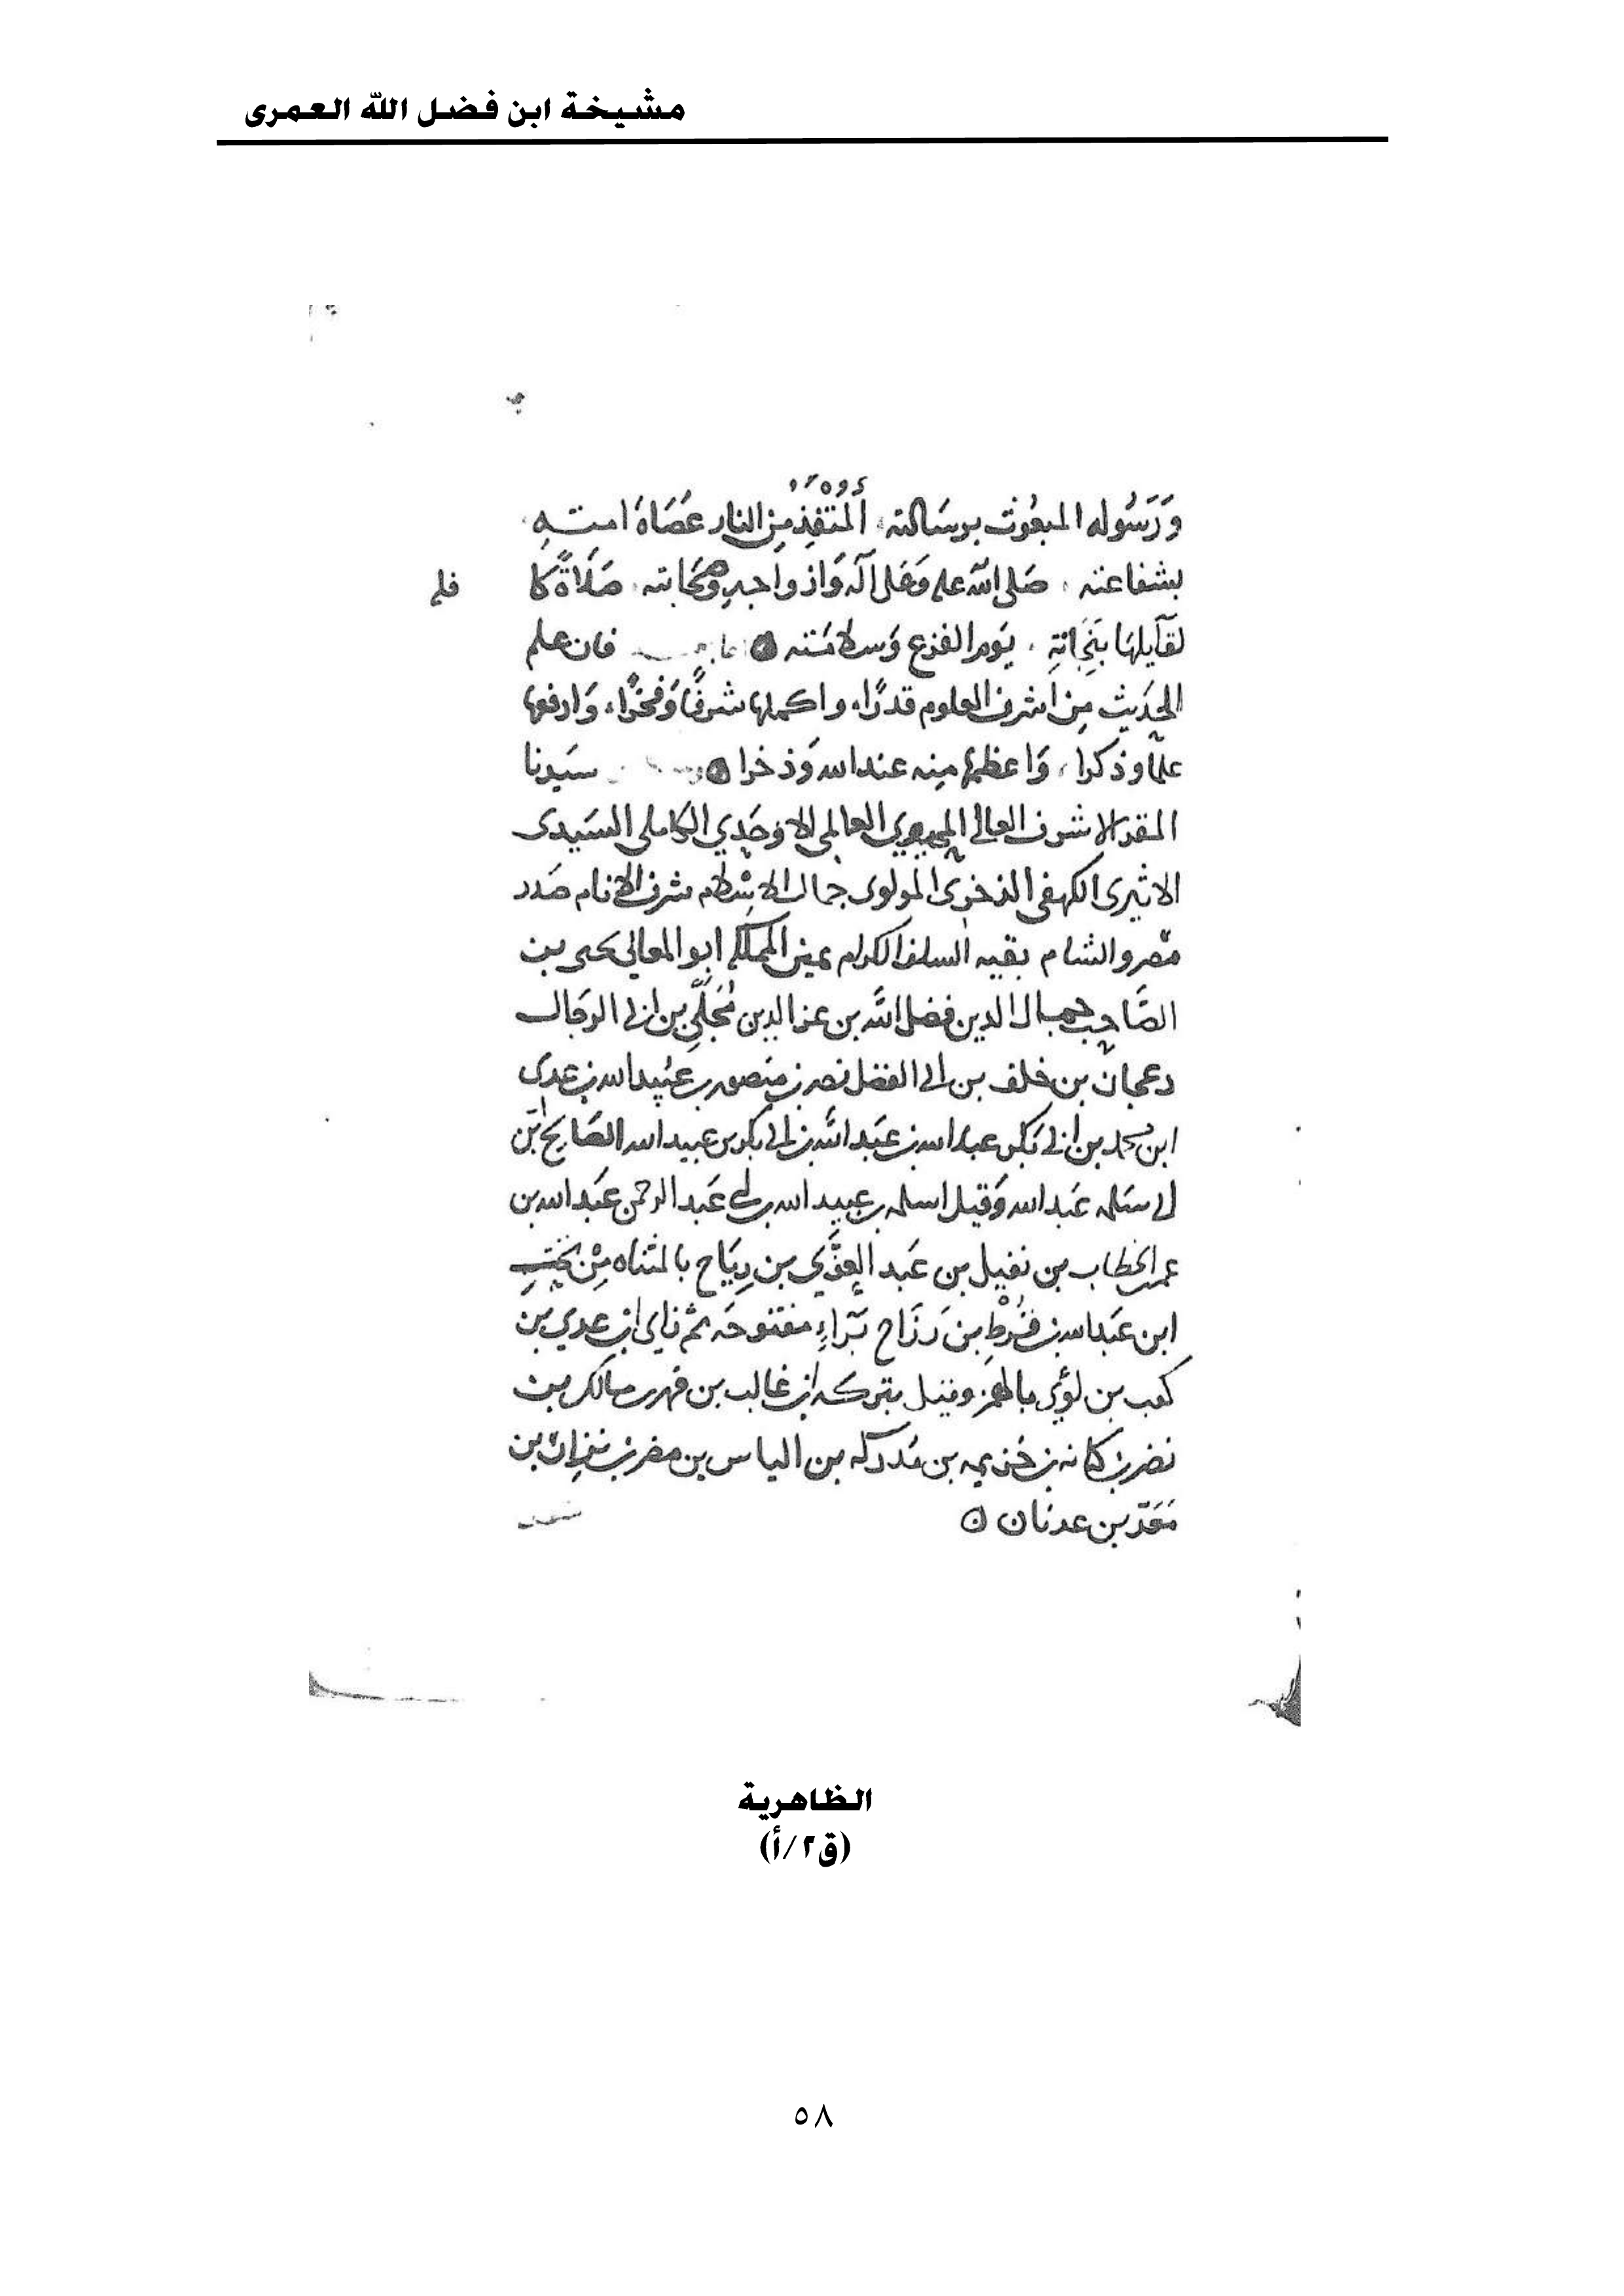 مشيخة ابن فضل الله العمرى
وَرَسُوله المبعُوث برسَالته، المُنقِذ مِن النار عُصَاة امته
بشفاعته، صَلى الله عليه وَعَلى آله وَازواجه وصحَابته، صَلَاةً
فلم
لقايلها بنجَاته، يَوم الفزع وَسلامَته فان علم
الحَديث مِن اشرف العلوم قدرًا، واكملها شرفًا وَفخرًا، وَارفعها
علمًا وذكرا، وَاعظمها منه عند الله وَذخرا سَيدنا
المقر الاشرف العالي المولوي العالمي الاوحَدي الكاملي السَيدى
الاثيرى الكهفى الذخرى المولوى جمال الاسْلام شرف الانام صَدر
مصر والشام بقيه السلف الكرام يمين المملكه ابو المعالي يحيى بن
الصَّاحب جمال الدين فضل الله بن عز الدين مُجَلِّي بن ابي الرجَال
دعجان بن خلف بن ابي الفضل نصر بن منصور بن عبَيد الله بن عدى
ابن محمد بن ابي بكر عبد الله بن عبَيد الله بن ابي بكر بن عبيد الله الصَالح بن
ابي سَلمه عَبد الله وَقيل اسلمه بن عبيد الله بن ابي عَبد الرحمن عَبد الله بن
عمر الخطاب بن نفيل بن عَبد العزَّي بن رِيَاح بالمثناه مِنْ تحت
ابن عَبد الله بن قُرْط بن رَزَاح بَرَاءٍ مفتوحَه ثم زاي ابن عدي بن
كعب بن لؤي بالهمز وقيل بتركه ابن غالب بن فهر بن مالك بن
نضر بن كنانه بن خُزيمه بن مُدركه بن الياس بن مضر بن نزار بن
مَعَدّ بن عدنان
الظاهرية
(ق٢/أ)
٥٨